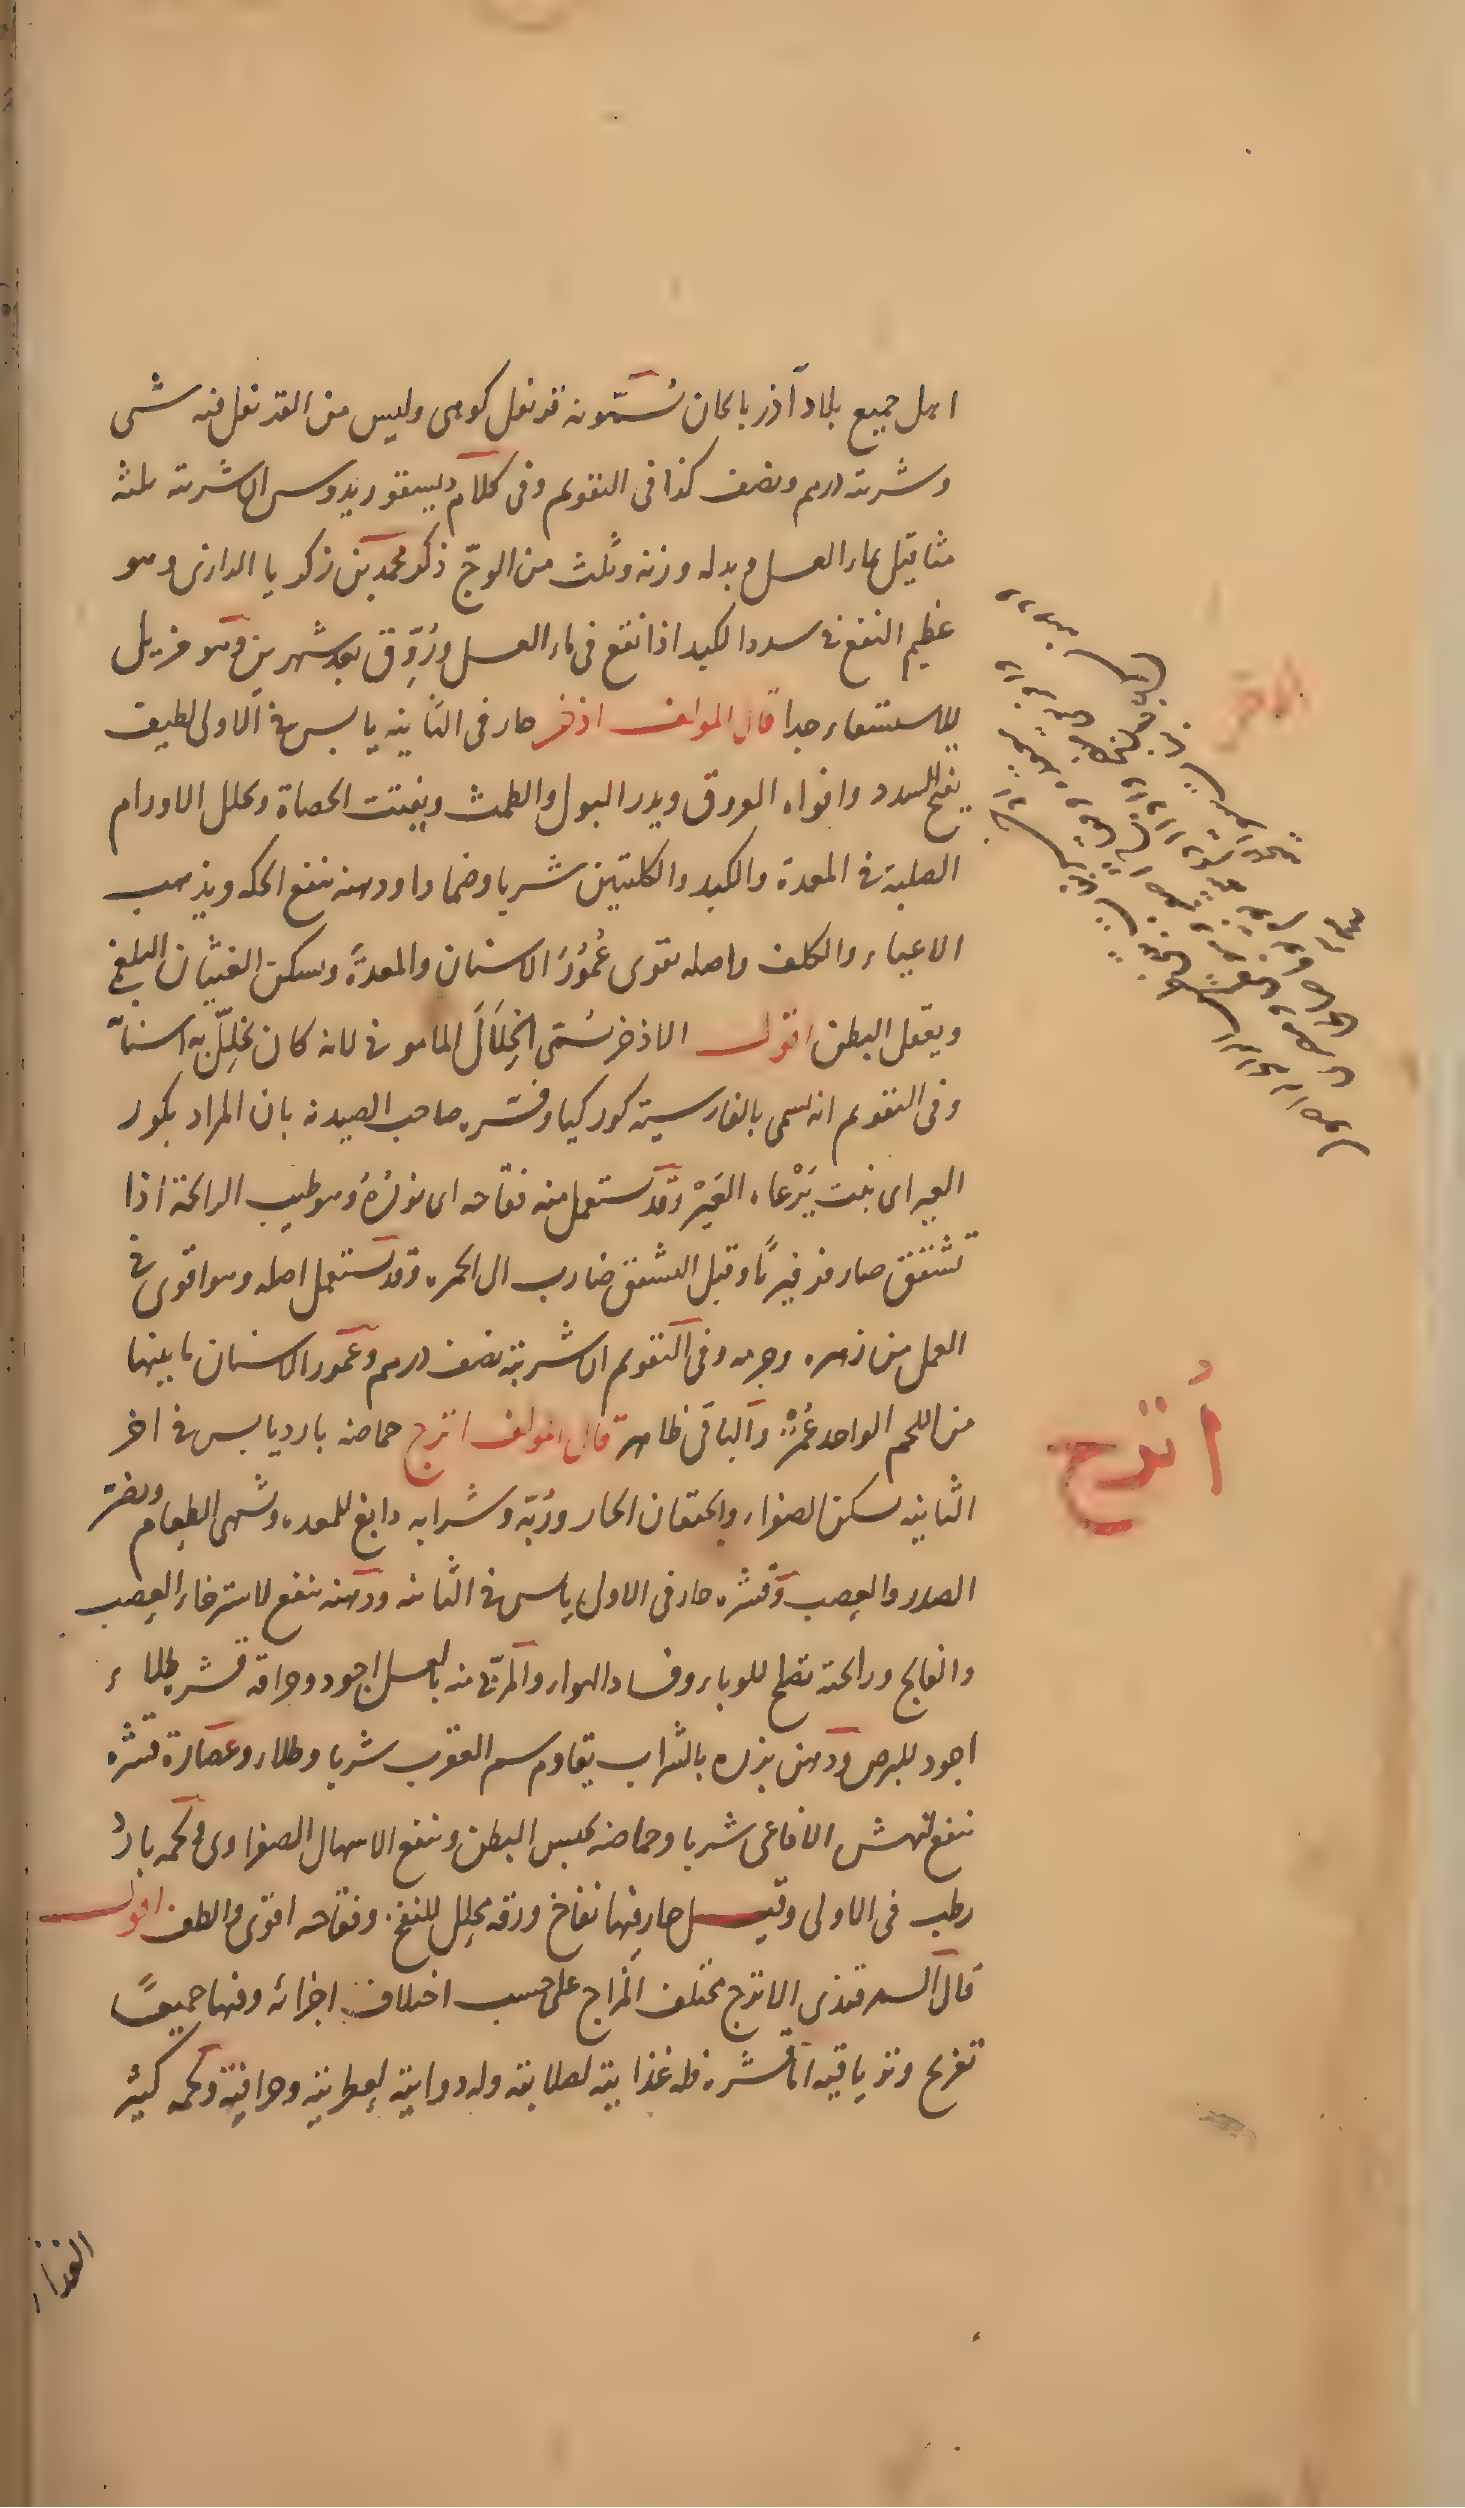 اهل جميع بلاد آذربايجان يسمّونه قرنفل كوهى وليس من القرنفل فى شى
وشربته درهم ونصف كذا فى التقويم وفى كلام ديسقوريدوس ان شربته ثلثة
مثاقيل بماء العسل وبدله وزنه وثلث من الوجّ ذكره محمد بن زكريا الرازى وهو
عظيم النفع فى سدد الكبد اذا نقع فى ماء العسل ورُوّق بعد شهرين وهو مزيل
للاستسقاء جدا قال المولف اذخر حار فى الثانيه يابس فى الاولى لطيف
يفتح السدد وافواه العروق ويدر البول والطمث ويفتت الحصاة ويحلل الاورام
الصلبة فى المعدة والكبد والكليتين شربا وضمادا ودهنه ينفع الحكه ويذهب
الاعياء والكلف واصله يقوى عُمُوُرَ الاسنان والمعدةَ ويسكن الغثيان البلغمى
ويعقل البطن اقول الاذخر يسُمّى الخِلَالَ المامونى لانه كان يخلِّل به اسنانه
وفى التقويم انه يسمى بالفارسية كوركيا وفسّره صاحب الصيدنه بان المراد بكور
العير اى نبت يَرْعاه العَيرْ وقد يستعمل منه فقاحه اى نورُهُ وهو طيب الرائحة اذا
تشقق صار فرفيريًّا وقبل التشقق ضارب الى الحمره وقد يستعمل اصله وهو اقوى فى
العمل من زهره وجرمه وفى التقويم ان شربته نصف درهم وعمور الاسنان ما بينها
من اللحم الواحد عُمْرٌ والباقى ظاهر قال المولف اترج حماضه بارد يابس فى اخر
الثانيه يسكن الصفراء والخفقان الحار ورُبّه وشرابه دابغ للمعده ويشهى الطعام ويضر
الصدر والعصب وقشره حار فى الاولى يابس فى الثانيه ودهنه ينفع لاسترخاء العصب
والفالج ورائحته تصلح للوباء وفساد الهواء والمربّى منه بالعسل اجود وحراقة قشره طلاء
اجود للبرص ودهن بزره بالشراب يقاوم سم العقرب شربا وطلاء وعصارة قشره
ينفع لنهش الافاعى شربا وحماضه يحبس البطن وينفع الاسهال الصفراوى ولحمه باردٌ
رطب فى الاولى وقيل حار فيها نفاخ ورقه محلل للنفخ وفقاحه اقوى والطف اقول
قال السمرقندى الاترج مختلف المزاج على حسب اختلاف اجزائه وفيها جميعًا
تفريح وترياقيه اما قشره فله غذائية لصلابته وله دوائية لعطريته وحرافيته ولحمه كثير
الغذاء
الاذخر
أُترج